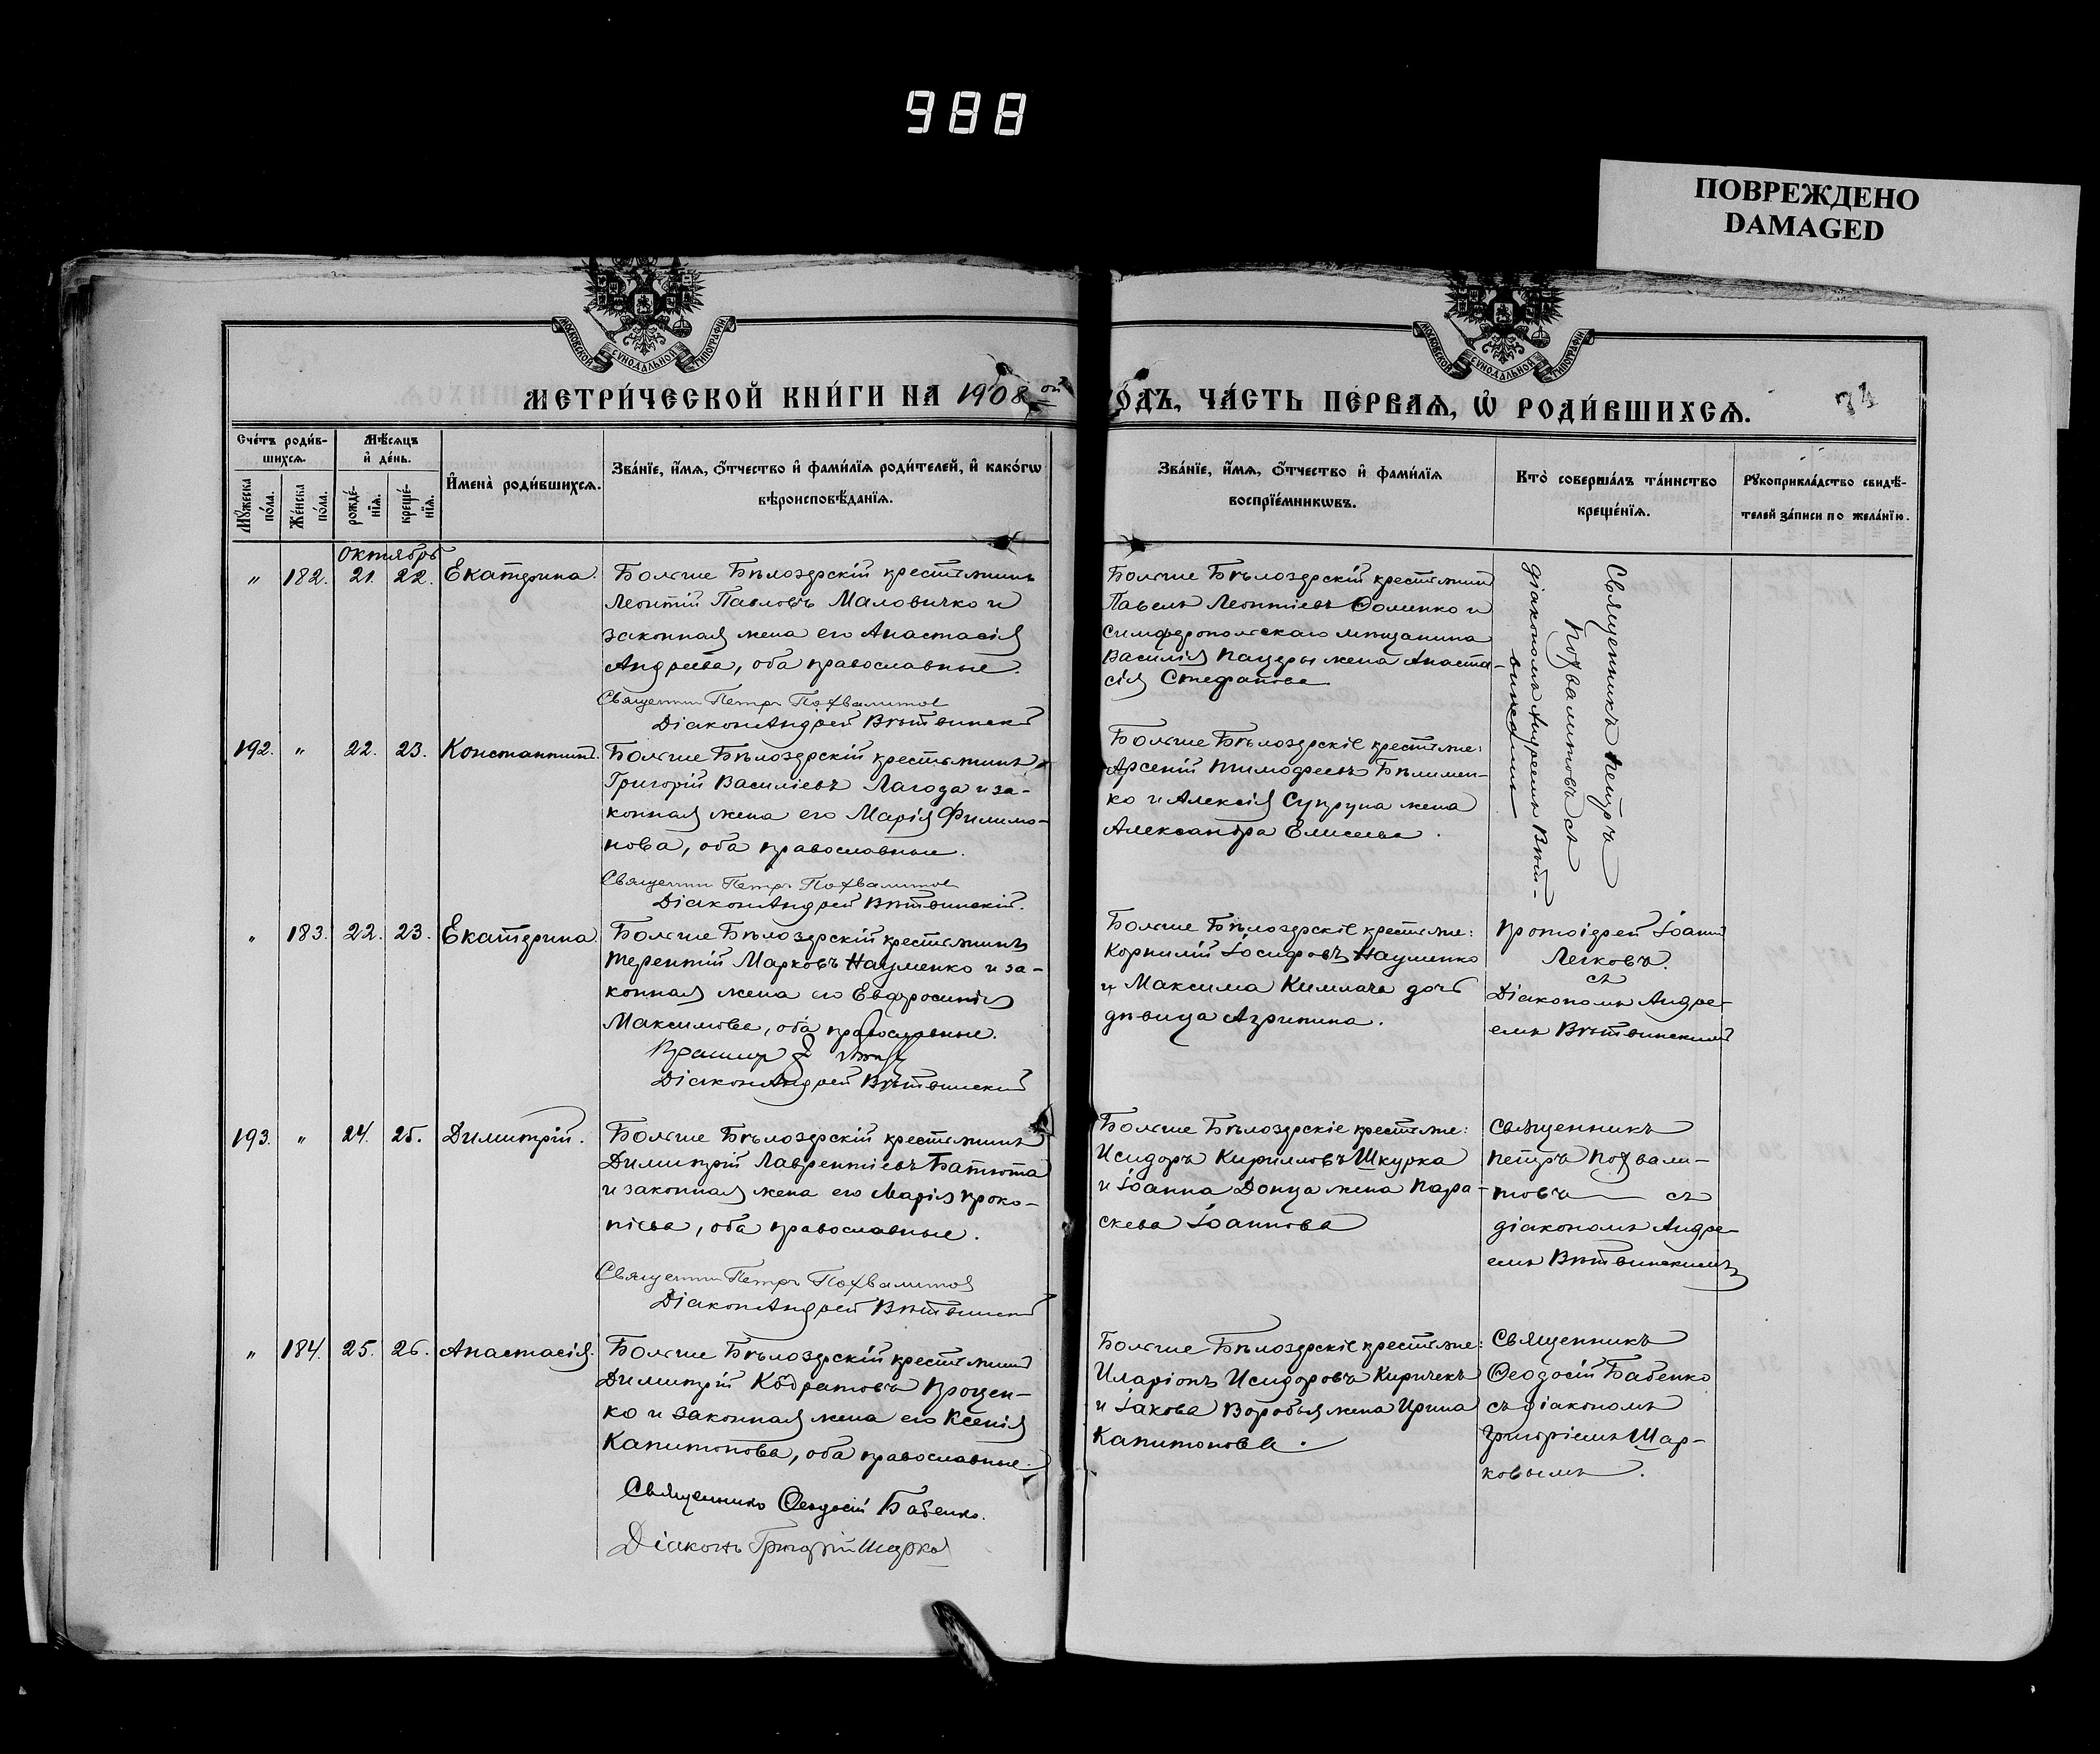 988
ПОВРЕЖДЕНО
DAMAGED
МОСКОВСКОЙ СѴНОДАЛЬНОЙ ТИПОГРАФІИ
МОСКОВСКОЙ СѴНОДАЛЬНОЙ ТИПОГРАФІИ
МЕТРИ́ЧЕСКОЙ КНИ́ГИ НА 1908 ой
ГО́ДЪ, ЧА́СТЬ ПЕ́РВАѦ, Ѡ҆ РОДИ́ВШИХСѦ.
74
Сче́тъ роди́в-
шихсѧ.
Мѣ́сѧцъ
и҆ де́нь.
И҆мена̀ роди́вшихсѧ.
Зва́нїе, и҆́мѧ, ѻ҆́тчество и҆ фами́лїѧ роди́телей, и҆ како́гѡ
вѣроисповѣ́данїѧ.
Мꙋ́жеска по́ла.
Же́нска по́ла.
рожде́-
нїѧ.
креще́-
нїѧ.
Зва́нїе, и҆́мѧ, ѻ҆́тчество и҆ фами́лїѧ
воспрїе́мникѡвъ.
Кто̀ соверша́лъ та́инство
креще́нїѧ.
Рꙋкоприкла́дство свидѣ́-
телей за́писи по жела́нїю.
Октябрь
" 182. 21. 22. Екатерина.
Больше Бѣлозерскій крестьянинъ
Леонтій Павловъ Маловичко и
законная жена его Анастасія
Андреева, оба православные.
Священник Петръ Похвалитов
Діаконъ Андрей Вѣтвинскій
Больше Бѣлозерскій крестьянин
Павелъ Леонтіевъ Ѳоменко и
Симферопольскаго мѣщанина
Василія Пацеры жена Анаста-
сія Стефанова
Священникъ Петръ
Похвалитовъ съ
діакономъ Андреемъ Вѣт-
винскимъ
192. " 22. 23. Константинъ.
Больше Бѣлозерскій крестьянинъ
Григорій Василіевъ Лагода и за-
конная жена его Марія Филимо-
нова, оба православные.
Священник Петръ Похвалитов
Діаконъ Андрей Вѣтвинскій.
Больше Бѣлозерскіе крестьяне:
Арсеній Тимофеевъ Бѣлимен-
ко и Алексія Супруна жена
Александра Елисеева.
" 183. 22. 23. Екатерина
Больше Бѣлозерскій крестьянинъ
Терентій Марковъ Науменко и за-
конная жена его Евфросинія
Максимова, оба православные.
Діаконъ Андрей Вѣтвинскій
Больше Бѣлозерскіе крестьяне:
Корнилій Іосифовъ Науменко
и Максима Кимлача дочь
дѣвица Агрипина.
Протоіерей Іоанн
Легковъ.
съ
Діакономъ Андре-
емъ Вѣтвинским
193. " 24. 25. Димитрій.
Больше Бѣлозерскій крестьянинъ
Димитрій Лаврентіевъ Батюта
и законная жена его Марія Проко-
піева, оба православные.
Священник Петръ Похвалитов
Діаконъ Андрей Вѣтвинскій
Больше Бѣлозерскіе крестьяне:
Исидоръ Кирилловъ Шкурка
и Іоанна Донца жена Пара-
скева Іоаннова
Священникъ
Петръ Похвали-
товъ — съ
діакономъ Андре-
емъ Вѣтвинскимъ
" 184. 25. 26. Анастасія.
Больше Бѣлозерскій крестьянин
Димитрій Кодратовъ Процен-
ко и законная жена его Ксенія
Капитонова, оба православные.
Священникъ Ѳеодосій Бабенко.
Діаконъ Григорій Шарко
Больше Бѣлозерскіе крестьяне:
Иларіонъ Исидоровъ Киричекъ
и Іакова Воробья жена Ирина
Капитонова.
Священникъ
Ѳеодосій Бабенко
съ діакономъ
Григоріемъ Шар-
ковымъ.